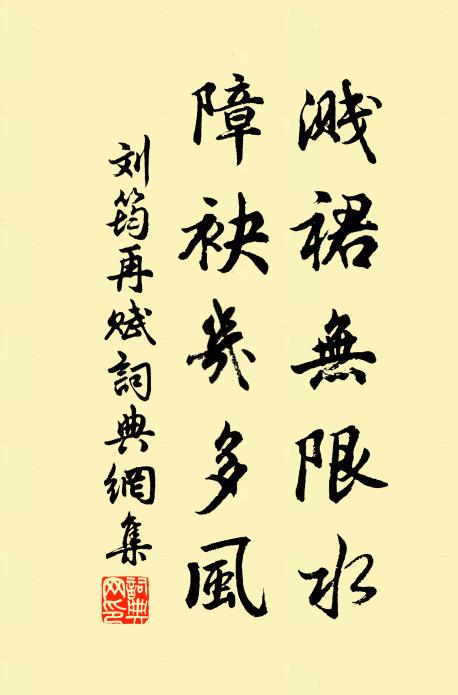 濺裙無限水
障袂幾多風
刘筠再赋詞典網集
詞典网印